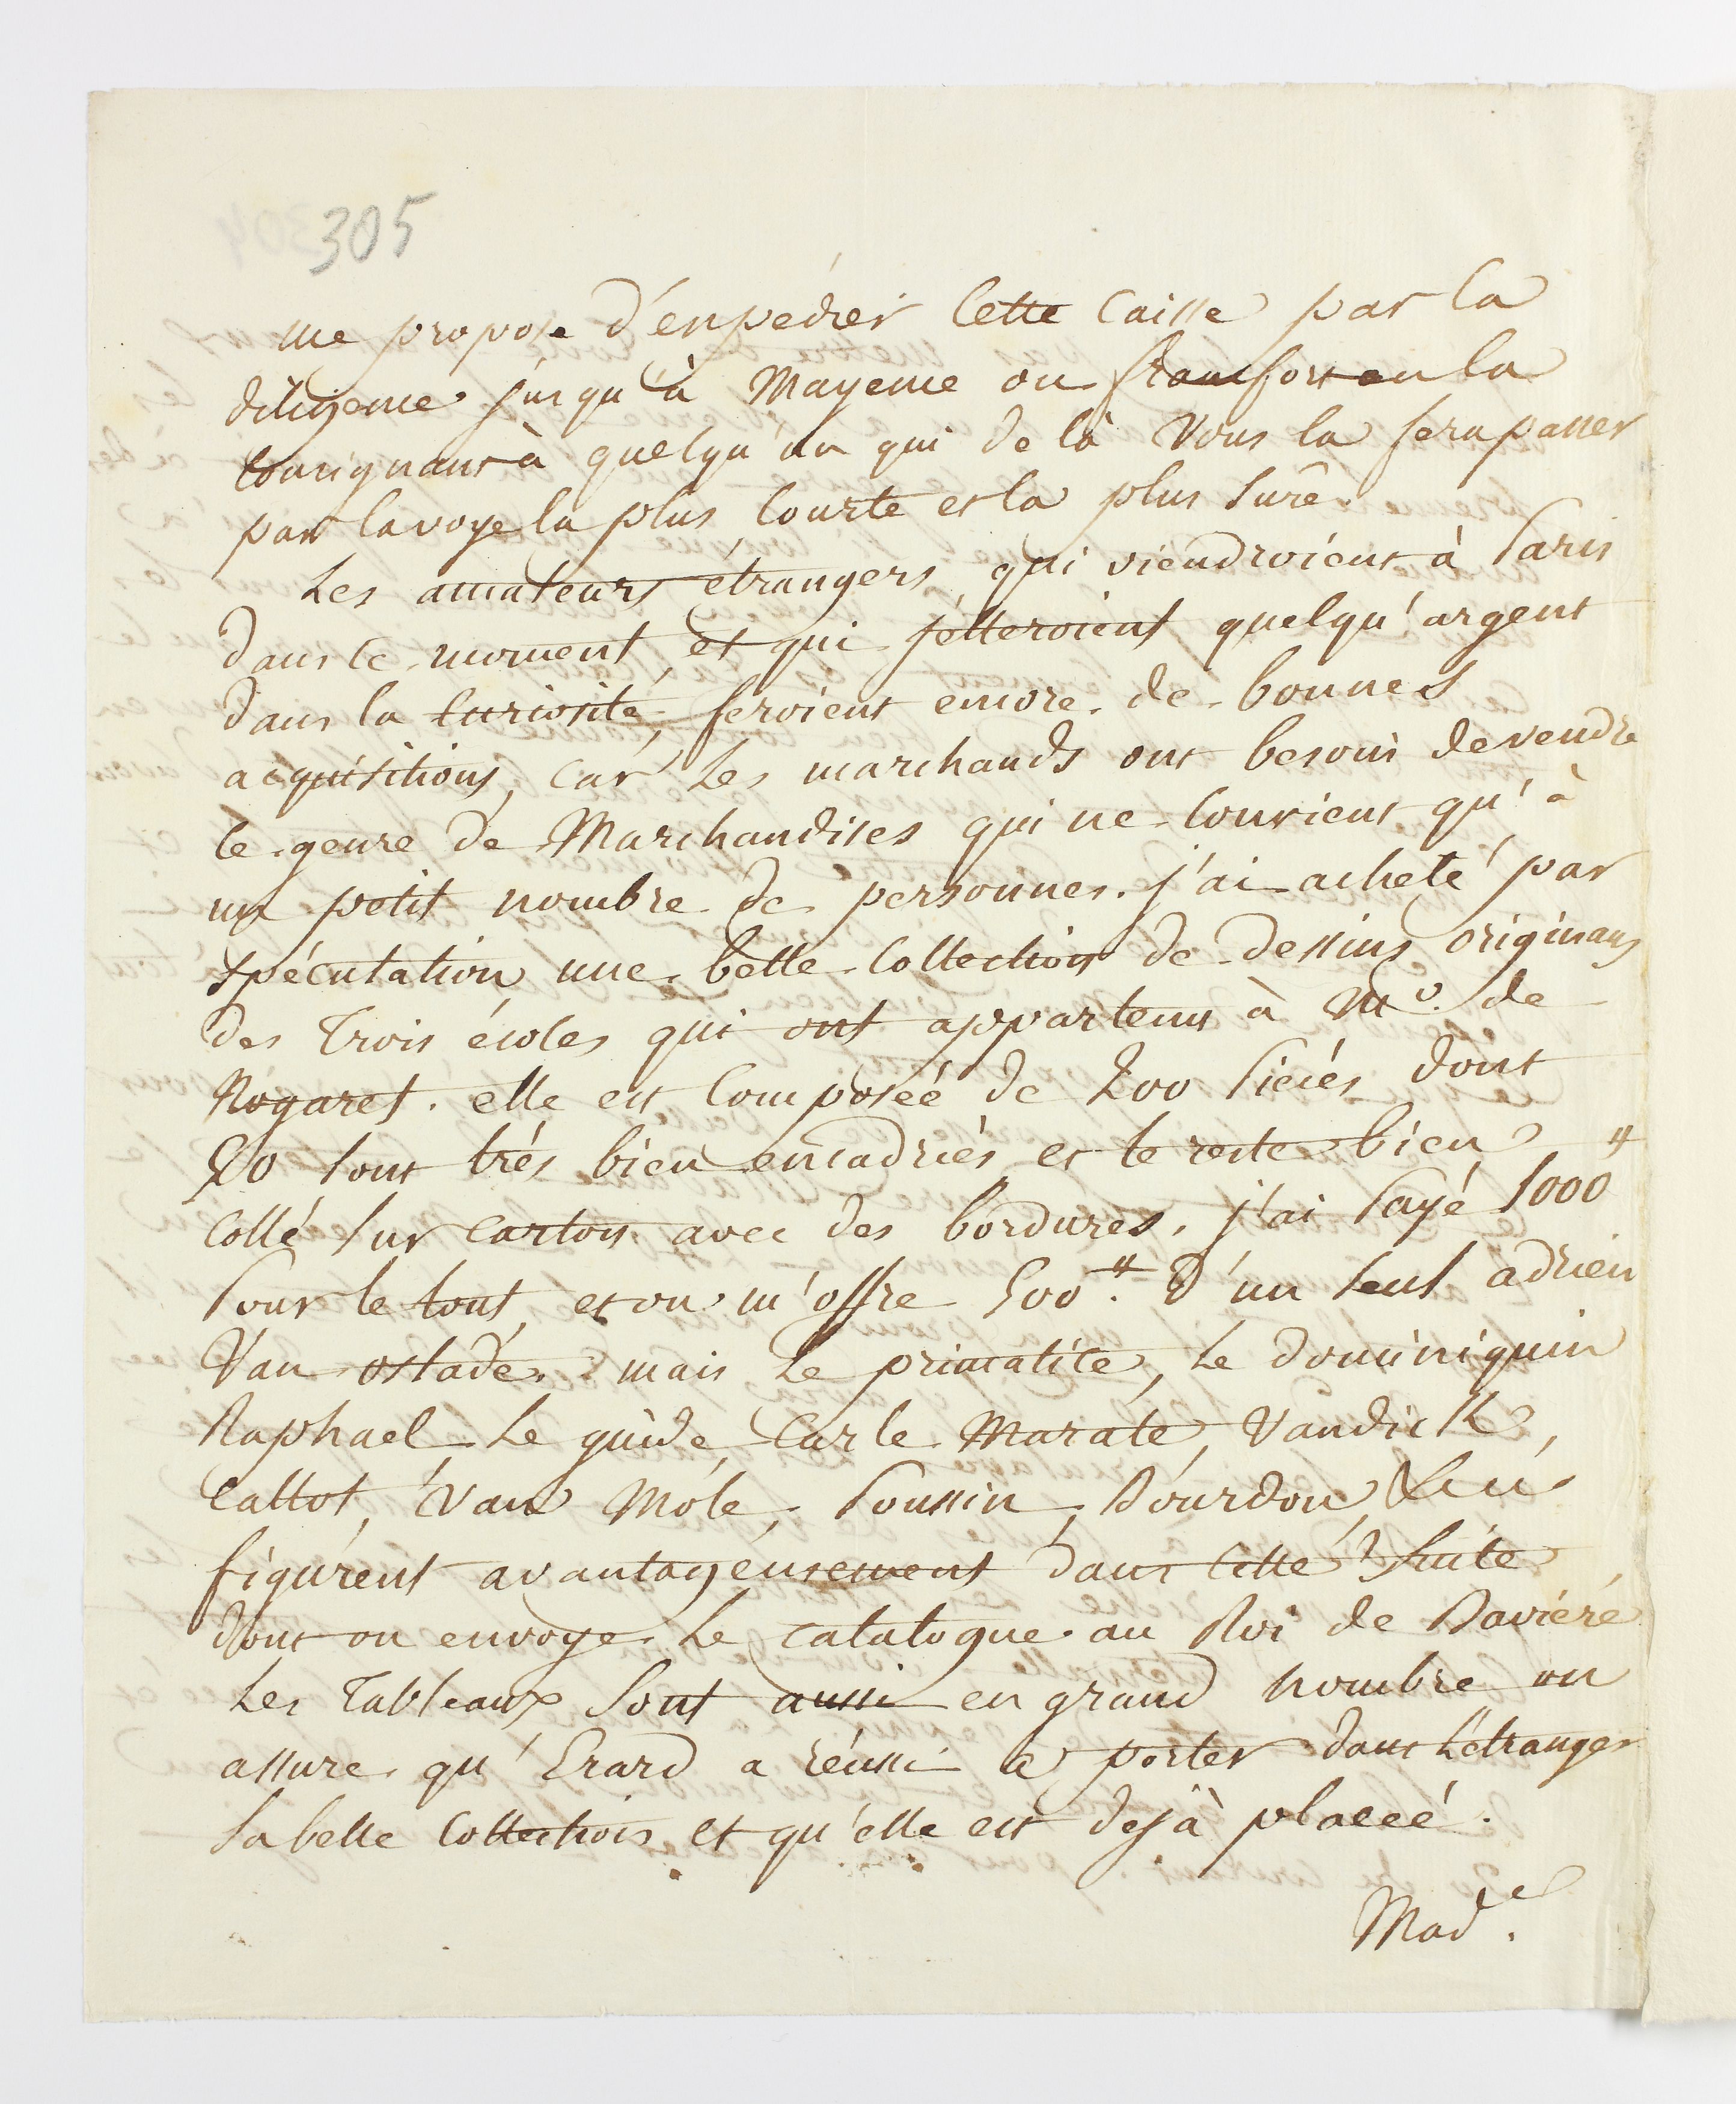 305
me propose d'expedier cette caisse par la
diligence jusqu'à Mayence ou francfort en la
consignant à quelqu'un qui de là vous la fera passer
par la voye la plus courte et la plus sure.
Les amateurs étrangers qui viendroient à Paris
dans ce moment, et qui jetteroient quelqu'argent
dans la curiosité, feroient encore de bonnes
acquisitions, car les marchands ont besoin de vendre
ce genre de Marchandises qui ne convient qu'à
un petit nombre de personnes. j'ai acheté par
spéculation une belle collection de dessins originaux
des trois écoles qui ont appartenus à Mr. de
Nogaret. elle est composée de 200 pieces dont
20 sont très bien encadrées et le reste bien
collé sur carton avec des bordures. j'ai payé 1000#
pour le tout, et on m'offre 500#. d'un seul adrien
Van ostade. mais le primatice, le dominiquin
Raphael le guide, Carle Marate, Vandick,
Callot, Van Mole, Poussin, Bourdon, &c.
figurent avantageusement dans cette suite
dont on envoye le catalogue au Roi de Baviere
Les Tableaux sont aussi en grand nombre on
assure qu'Erard a réussi a porter dans l'étranger
sa belle collection et qu'elle est dejà placée.
Made.